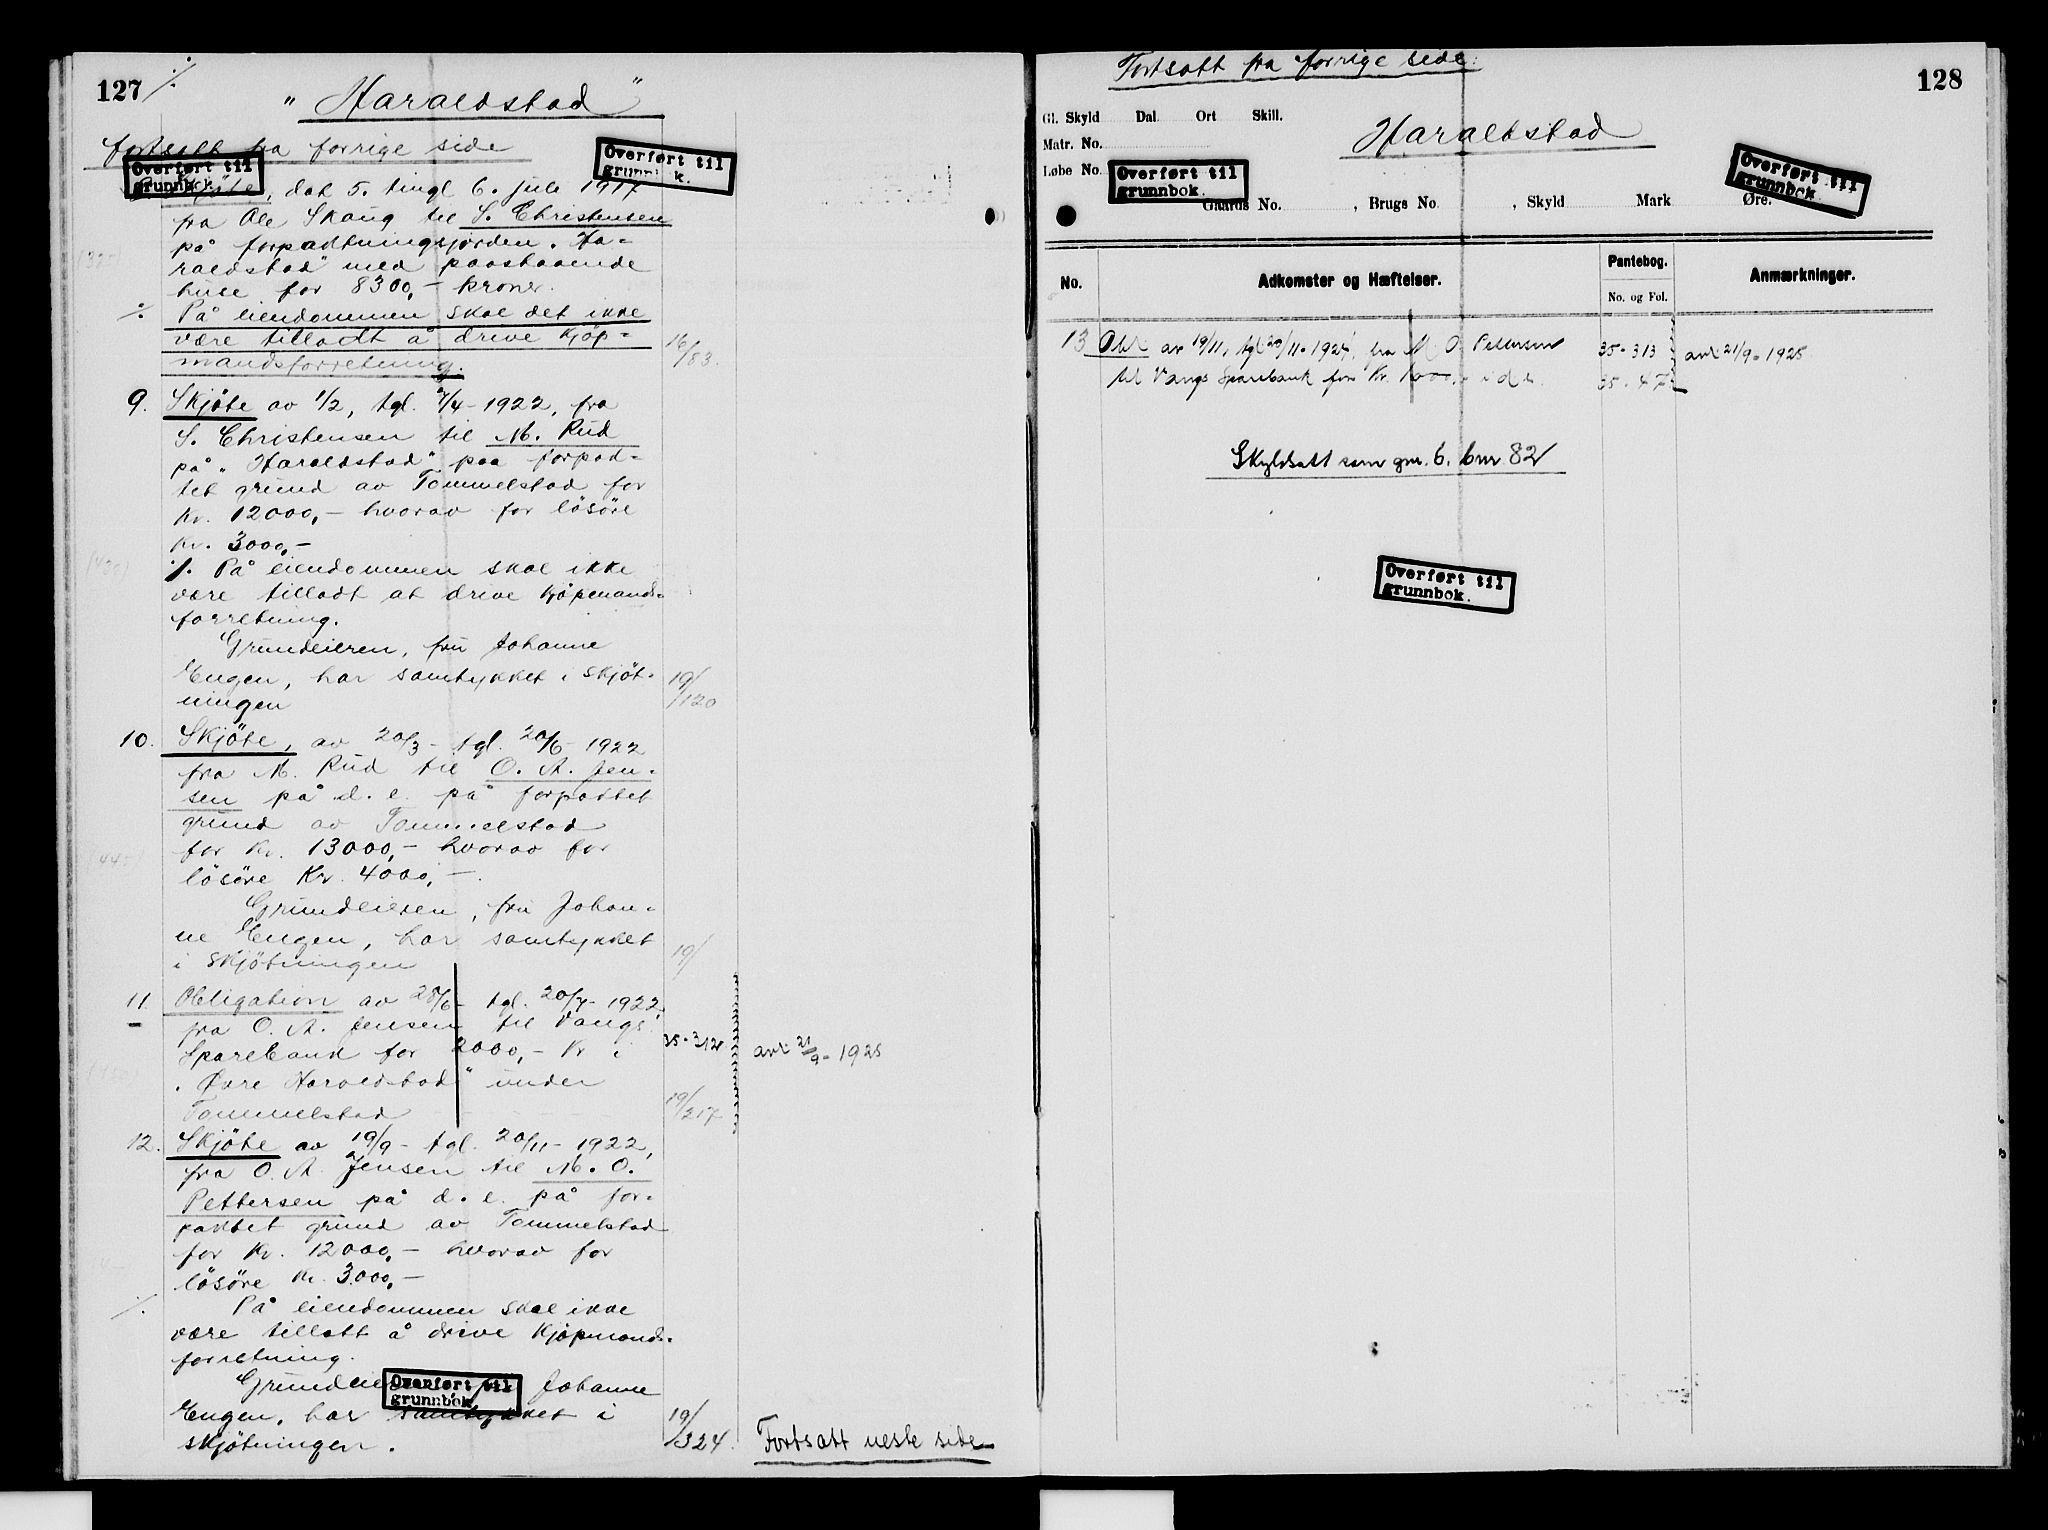 127 ./.
"Haraldstad"
fortsatt fra forrige side
Overført til
grunnbok.
Overført til
grunnbok.
Skjöte, dat 5. tingl 6. juli 1917
fra Ole Skaug til S. Christensen
på forpaktningsjorden "Ha-
raldstad" med paastaaende
huse for 8300,- kroner.
./. På eiendommen skal det ikke
være tilladt å drive kjöp-
mandsforretning.
16/83.
9. Skjöte av 1/2, tgl. 4/4-1922, fra
S. Christensen til M. Rud
på "Haraldstad" paa forpak-
tet grund av Tommelstad for
Kr. 12000,- hvorav for lösöre
Kr. 3000,-
./. På eiendommen skal ikke
være tilladt at drive kjöpmands-
forretning.
Grundeieren, fru Johanne
Engen, har samtykket i skjöt-
ningen
19/120
10. Skjöte, av 20/3- tgl. 20/6-1922
fra M. Rud til O. A. Jen-
sen på d. e. på forpaktet
grund av Tommelstad
for Kr. 13000,- hvorav for
lösöre Kr. 4000,-.
Grundeieren, fru Johan-
ne Engen, har samtykket
i skjötningen
19/
11. Obligation av 28/6- tgl. 20/7-1922,
fra O. A. Jensen til Vangs
Sparebank for 2000,- Kr i
"Øvre Haraldstad" under
Tommelstad
35-312
19/217
avl 21/9-1925
12. Skjöte av 19/9- tgl. 20/11-1922,
fra O. A. Jensen til M. O.
Pettersen på d. e. på for-
paktet grund av Tommelstad
for Kr. 12000,- hvorav for
lösöre Kr. 3000,-
./. På eiendommen skal ikke
være tillatt å drive kjöpmands-
forretning.
Grundeieren, fru Johanne
Overført til
grunnbok
Engen, har samtykket i
skjötningen.
19/324.
Fortsatt neste side
Fortsatt fra forrige side.
128
Gl. Skyld Dal. Ort Skill.
Matr. No.
Løbe No.
Haraldstad
Overført til
grunnbok.
Overført til
grunnbok.
Gaards No. , Brugs No. , Skyld Mark Øre.
No.
Adkomster og Hæftelser.
Pantebog.
No. og Fol.
Anmærkninger.
13 Obl. av 19/11, tgl 20/11-1924, fra M. O. Pettersen
til Vangs Sparebank for Kr. 1000,- i d. e.
35-313
35-47
avl 21/9-1925
Skyldsatt som gnr. 6. bnr 82
Overført til
grunnbok.